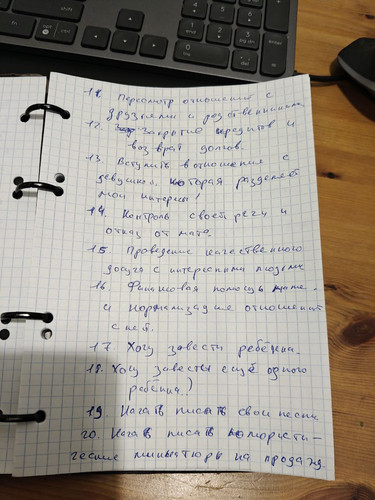 11. Пересмотр отношений с
друзьями и родственниками
12. Закрытие кредитов и
возврат долгов.
13. Вступить в отношение с
девушкой, которая разделяет
мои интересы!
14. Контроль своей речи и
отказ от мата.
15. Проведение качественного
досуга с интересными людьми
16. Финансовая помощь маме
и нормализация отношений
с ней.
17. Хочу завести ребёнка.
18. Хочу завести ещё одного
ребёнка)
19. Начать писать свои песни
20. Начать писать юмористи-
ческие миниатюры на продажу.